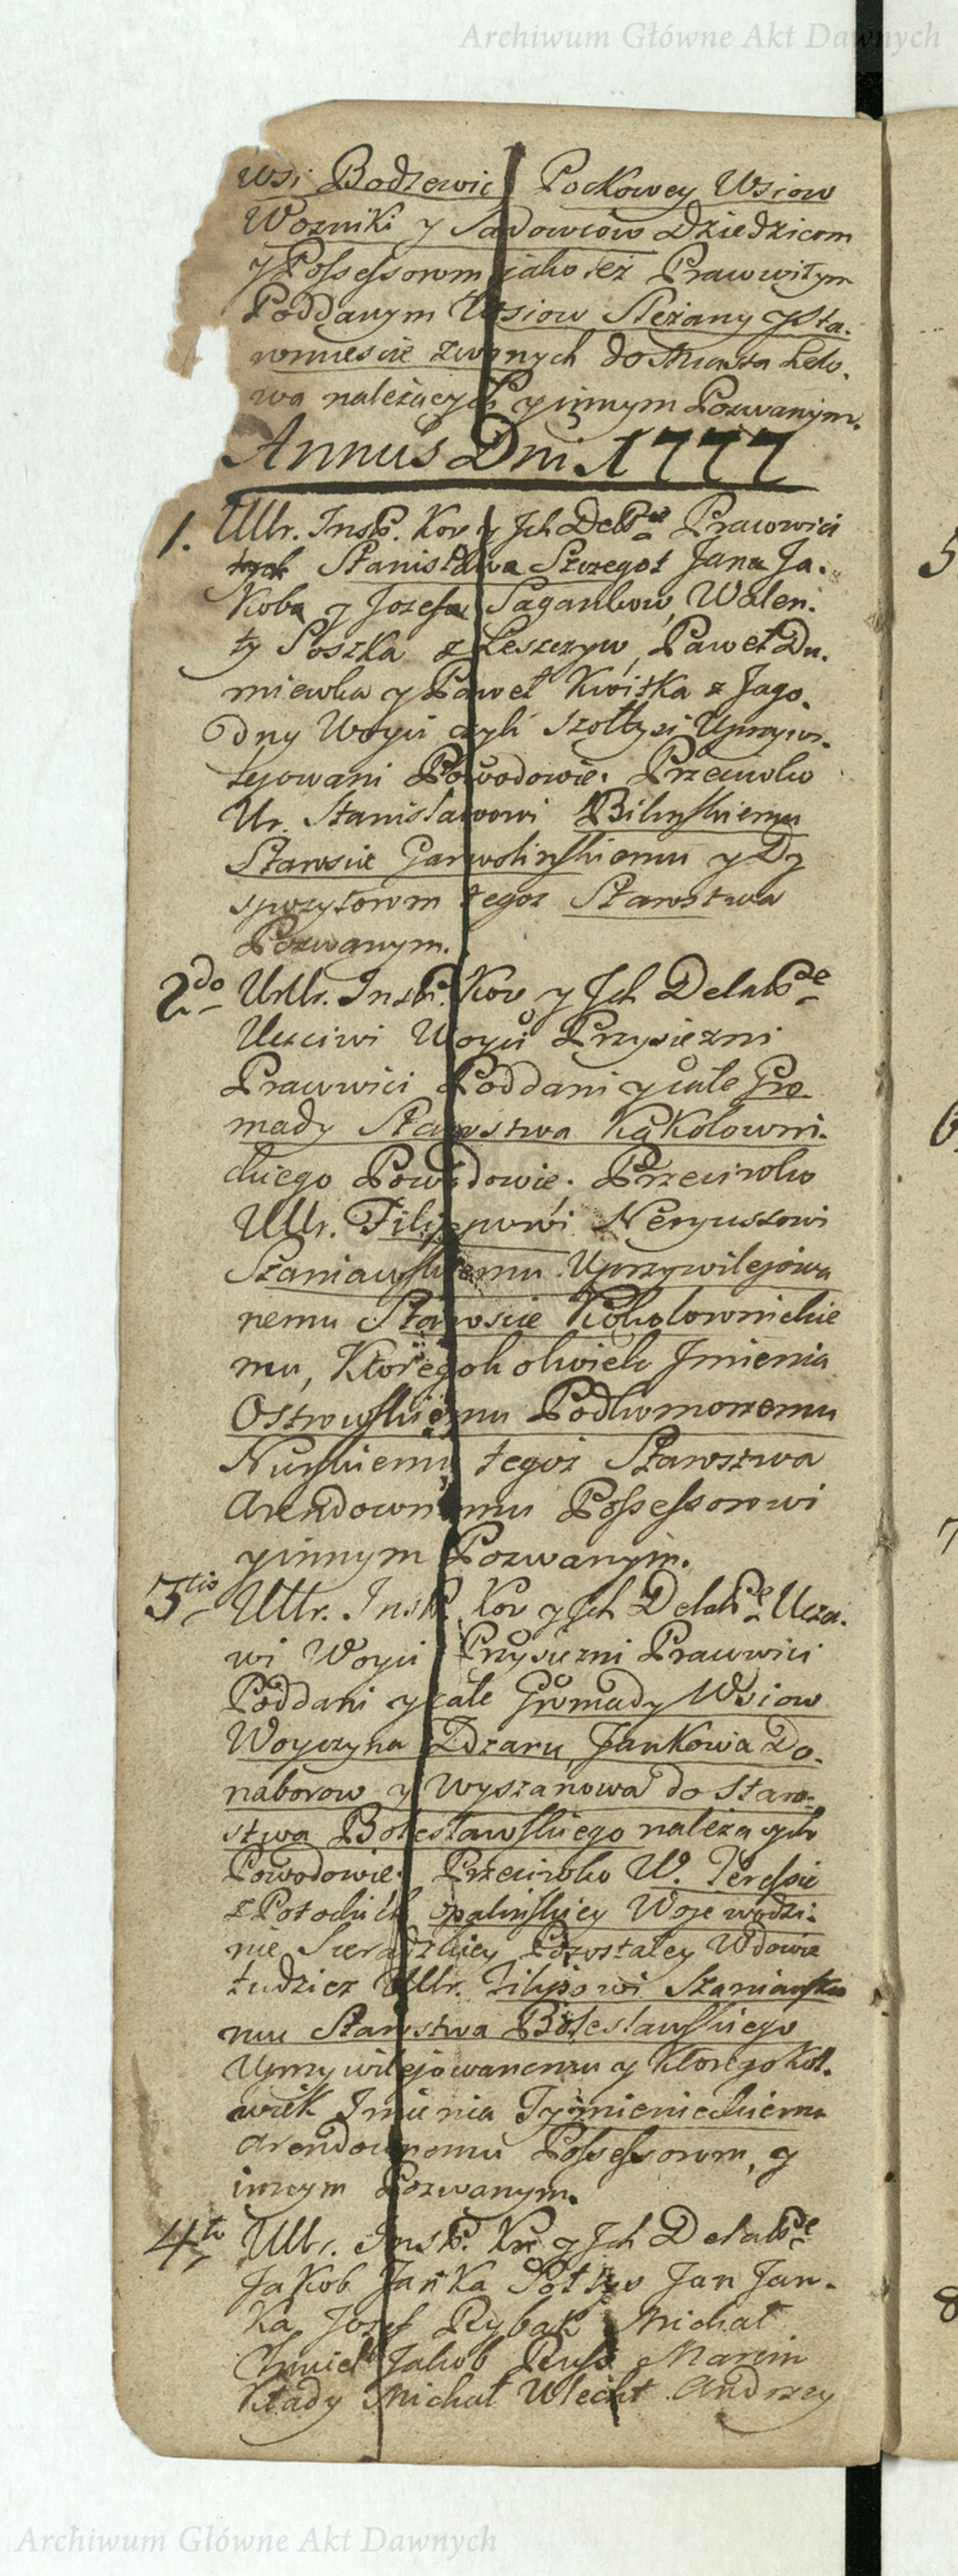 Archiwum Główne Akt Dawnych
wsi Bodzewic Pockowey Wsiow
Wozniki y Sadowciow Dziedzicom
y Possessorom jako też Prawwitym
Poddanym Wsiow Steżany y Sta.
zwanych do Miasta Lelo.
wa należących y innym Pozwanym.
Annus Dni 1777
1. Ullr. Inst. Kor y Jch Delat Prawowici
Stanisława Szczegot Jana Ja.
Koba y Jozefa Sagankow, Walen.
ty Soszka z Leszczyw, Paweł Du.
miewka y Paweł Kwiska z Jago.
dny Woyci czyli Szołtysi Uprzyw.
lejowani Powodowie. Przeciwko
Ur. Stanisławowi Bilinskiemu
Staroscie Garwolinskiemu y Dy
spozytorom tegoz Starostwa
Pozwanym.
2do Urllr. Inst. Kor y Jch Delat
Uczciwi Woyci Przysiezni
Prawwici Poddani y całe Gro.
mady Starostwa Kąkolowni.
ckiego Powodowie. Przeciwko
Ullr. Filippowi Neryuszowi
Szaniawskiemu Uprzywilejowa
nemu Staroscie Kokolownickie
mu, Ktoregokolwiek Jmienia
Ostrowskiemu Podkomorzemu
Nurskiemu tegoż Starostwa
Arendownemu Possessorowi
y innym Pozwanym.
3tio Ullr. Inst. Kor y Jch Delat Uczci.
wi Woyci Przysiezni Prawwici
Poddani y całe Gromady Wsiow
Woyczyna Zdzaru, Jankowa Do.
naborow y Wyszanowa do Staro.
stwa Bolesławskiego należących
Powodowie. Przeciwko W. Teressie
z Potockich Opalinskiey Wojewodzi.
nie Sieradzkiey Pozostałey Wdowie
tudziez Ullr. Filipowi Szaniawskie
mu Starostwa Bolesławskiego
Uprzywilejowanemu y Ktoregokol.
wiek Jmienia Tymienieckiemu
Arendownemu Possessorom, y
innym Pozwanym.
4to Ullr. Inst. Kor y Jch Delat
Jakob Janka Jan Jan.
ka Jozef Rybak Michał
Chmiel Jakob Ruso Marcin
Kłady Michał Wlecht Andrzey
Archiwum Główne Akt Dawnych